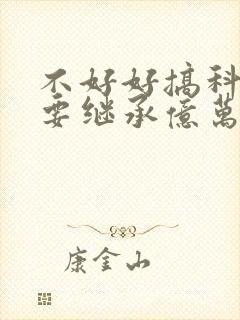 不好好搞科
要继承億萬
康金山